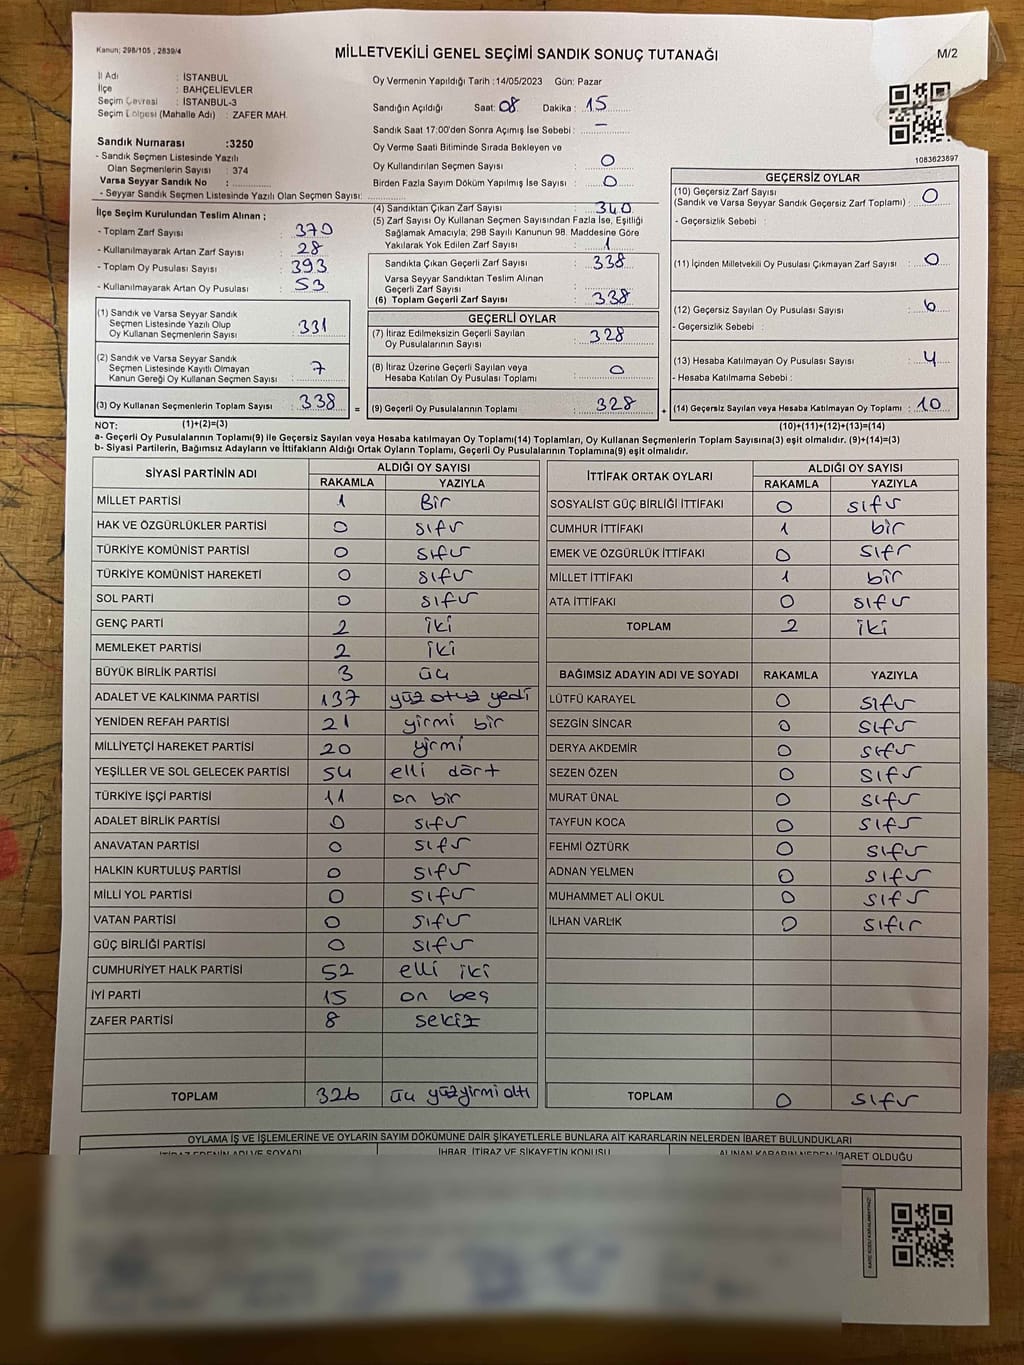 Kanun; 298/105 , 2839/4
MİLLETVEKİLİ GENEL SEÇİMİ SANDIK SONUÇ TUTANAĞI
M/2
İl Adı : İSTANBUL
İlçe : BAHÇELİEVLER
Seçim Çevresi : İSTANBUL-3
Seçim Bölgesi (Mahalle Adı) : ZAFER MAH.
Oy Vermenin Yapıldığı Tarih :14/05/2023 Gün: Pazar
Sandığın Açıldığı Saat: 08 Dakika : 15
Sandık Saat 17:00'den Sonra Açımış İse Sebebi : –
Sandık Numarası :3250
- Sandık Seçmen Listesinde Yazılı
Olan Seçmenlerin Sayısı : 374
Varsa Seyyar Sandık No :
- Seyyar Sandık Seçmen Listesinde Yazılı Olan Seçmen Sayısı:
Oy Verme Saati Bitiminde Sırada Bekleyen ve
Oy Kullandırılan Seçmen Sayısı : 0
Birden Fazla Sayım Döküm Yapılmış İse Sayısı : 0
1083623897
İlçe Seçim Kurulundan Teslim Alınan ;
- Toplam Zarf Sayısı : 370
- Kullanılmayarak Artan Zarf Sayısı : 28
- Toplam Oy Pusulası Sayısı : 393
- Kullanılmayarak Artan Oy Pusulası : 53
(1) Sandık ve Varsa Seyyar Sandık
Seçmen Listesinde Yazılı Olup
Oy Kullanan Seçmenlerin Sayısı : 331
(2) Sandık ve Varsa Seyyar Sandık
Seçmen Listesinde Kayıtlı Olmayan
Kanun Gereği Oy Kullanan Seçmen Sayısı : 7
(3) Oy Kullanan Seçmenlerin Toplam Sayısı : 338 =
(1)+(2)=(3)
(4) Sandıktan Çıkan Zarf Sayısı : 340
(5) Zarf Sayısı Oy Kullanan Seçmen Sayısından Fazla İse, Eşitliği
Sağlamak Amacıyla; 298 Sayılı Kanunun 98. Maddesine Göre
Yakılarak Yok Edilen Zarf Sayısı : 1
Sandıkta Çıkan Geçerli Zarf Sayısı : 338
Varsa Seyyar Sandıktan Teslim Alınan
Geçerli Zarf Sayısı :
(6) Toplam Geçerli Zarf Sayısı : 338
GEÇERLİ OYLAR
(7) İtiraz Edilmeksizin Geçerli Sayılan
Oy Pusulalarının Sayısı : 328
(8) İtiraz Üzerine Geçerli Sayılan veya
Hesaba Katılan Oy Pusulası Toplamı : 0
(9) Geçerli Oy Pusulalarının Toplamı : 328 +
GEÇERSİZ OYLAR
(10) Geçersiz Zarf Sayısı
(Sandık ve Varsa Seyyar Sandık Geçersiz Zarf Toplamı) : 0
- Geçersizlik Sebebi :
(11) İçinden Milletvekili Oy Pusulası Çıkmayan Zarf Sayısı : 0
(12) Geçersiz Sayılan Oy Pusulası Sayısı : 6
- Geçersizlik Sebebi :
(13) Hesaba Katılmayan Oy Pusulası Sayısı : 4
- Hesaba Katılmama Sebebi :
(14) Geçersiz Sayılan veya Hesaba Katılmayan Oy Toplamı : 10
(10)+(11)+(12)+(13)=(14)
NOT:
a- Geçerli Oy Pusulalarının Toplamı(9) ile Geçersiz Sayılan veya Hesaba katılmayan Oy Toplamı(14) Toplamları, Oy Kullanan Seçmenlerin Toplam Sayısına(3) eşit olmalıdır. (9)+(14)=(3)
b- Siyasi Partilerin, Bağımsız Adayların ve İttifakların Aldığı Ortak Oyların Toplamı, Geçerli Oy Pusulalarının Toplamına(9) eşit olmalıdır.
SİYASİ PARTİNİN ADI ALDIĞI OY SAYISI
RAKAMLA YAZIYLA
MİLLET PARTİSİ 1 Bir
HAK VE ÖZGÜRLÜKLER PARTİSİ 0 sıfır
TÜRKİYE KOMÜNİST PARTİSİ 0 sıfır
TÜRKİYE KOMÜNİST HAREKETİ 0 sıfır
SOL PARTİ 0 sıfır
GENÇ PARTİ 2 iki
MEMLEKET PARTİSİ 2 iki
BÜYÜK BİRLİK PARTİSİ 3 üç
ADALET VE KALKINMA PARTİSİ 137 yüz otuz yedi
YENİDEN REFAH PARTİSİ 21 yirmi bir
MİLLİYETÇİ HAREKET PARTİSİ 20 yirmi
YEŞİLLER VE SOL GELECEK PARTİSİ 54 elli dört
TÜRKİYE İŞÇİ PARTİSİ 11 on bir
ADALET BİRLİK PARTİSİ 0 sıfır
ANAVATAN PARTİSİ 0 sıfır
HALKIN KURTULUŞ PARTİSİ 0 sıfır
MİLLİ YOL PARTİSİ 0 sıfır
VATAN PARTİSİ 0 sıfır
GÜÇ BİRLİĞİ PARTİSİ 0 sıfır
CUMHURİYET HALK PARTİSİ 52 elli iki
İYİ PARTİ 15 on beş
ZAFER PARTİSİ 8 sekiz
TOPLAM 326 üç yüzyirmi altı
İTTİFAK ORTAK OYLARI ALDIĞI OY SAYISI
RAKAMLA YAZIYLA
SOSYALİST GÜÇ BİRLİĞİ İTTİFAKI 0 sıfır
CUMHUR İTTİFAKI 1 bir
EMEK VE ÖZGÜRLÜK İTTİFAKI 0 sıfr
MİLLET İTTİFAKI 1 bir
ATA İTTİFAKI 0 sıfır
TOPLAM 2 iki
BAĞIMSIZ ADAYIN ADI VE SOYADI RAKAMLA YAZIYLA
LÜTFÜ KARAYEL 0 sıfır
SEZGİN SİNCAR 0 sıfır
DERYA AKDEMİR 0 sıfır
SEZEN ÖZEN 0 sıfır
MURAT ÜNAL 0 sıfır
TAYFUN KOCA 0 sıfır
FEHMİ ÖZTÜRK 0 sıfır
ADNAN YELMEN 0 sıfır
MUHAMMET ALİ OKUL 0 sıfır
İLHAN VARLIK 0 sıfır
TOPLAM 0 sıfır
OYLAMA İŞ VE İŞLEMLERİNE VE OYLARIN SAYIM DÖKÜMÜNE DAİR ŞİKAYETLERLE BUNLARA AİT KARARLARIN NELERDEN İBARET BULUNDUKLARI
İTİRAZ EDENİN ADI VE SOYADI İHBAR, İTİRAZ VE ŞİKAYETİN KONUSU ALINAN KARARIN NEDEN İBARET OLDUĞU